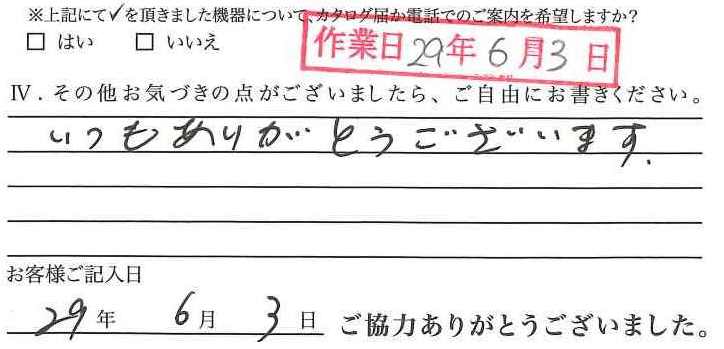 ※上記にて✓を頂きました機器について、カタログ届か電話でのご案内を希望しますか?
□ はい □ いいえ
作業日29年6月3日
Ⅳ.その他お気づきの点がございましたら、ご自由にお書きください。
いつもありがとうございます.
お客様ご記入日
29年 6月 3日 ご協力ありがとうございました。